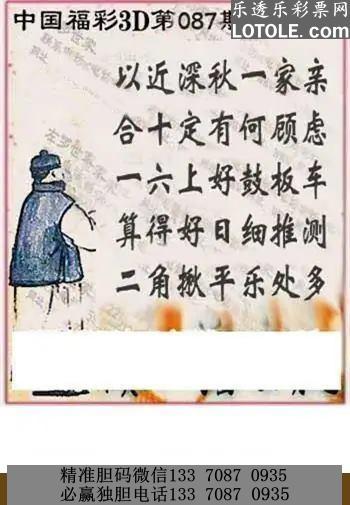 中国福彩3D第087期
乐透乐彩票网
LOTOLE.COM
以近深秋一家亲
合十定有何顾虑
一六上好鼓板车
算得好日细推测
二角揪平乐处多
精准胆码微信133 7087 0935
必赢独胆电话133 7087 0935